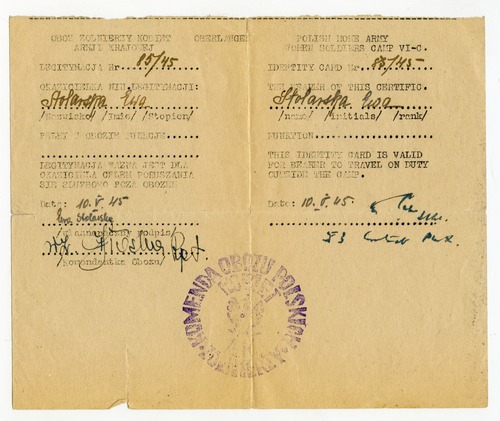 OBOZ ZOLNIERZY KOBIET OBERLANGEN
ARMJI KRAJOWEJ
LEGITYMACJA Nr. 85/45
OKAZICIELKA NIN. LEGITYMACJI:
Stolarska Ewa
/Nazwisko/ /Imie/ /Stopien/
PELNI W OBOZIE FUNKCJE.
LEGITYMACJA WAZNA JEST DLA
OKAZICIELA CELEM PORUSZANIA
SIE SLUZBOWO POZA OBOZEM
Data: 10.V.45
Ewa Stolarska
/Wlasnoreczny podpis/
/Komendantka Obozu/
POLISH HOME ARMY
WOMEN SOLDIERS CAMP VI-C.
IDENTITY CARD Nr. 85/45
THE BEARER OF THIS CERTIFIC.
Stolarska Ewa
/name/ /initials/ /rank/
FUNKTION.
THIS IDENTITY CARD IS VALID
FOR BEARER TO TRAVEL ON DUTY
OUTSIDE THE CAMP.
Date: 10.V.45
KOMENDA OBOZU POLSKICH